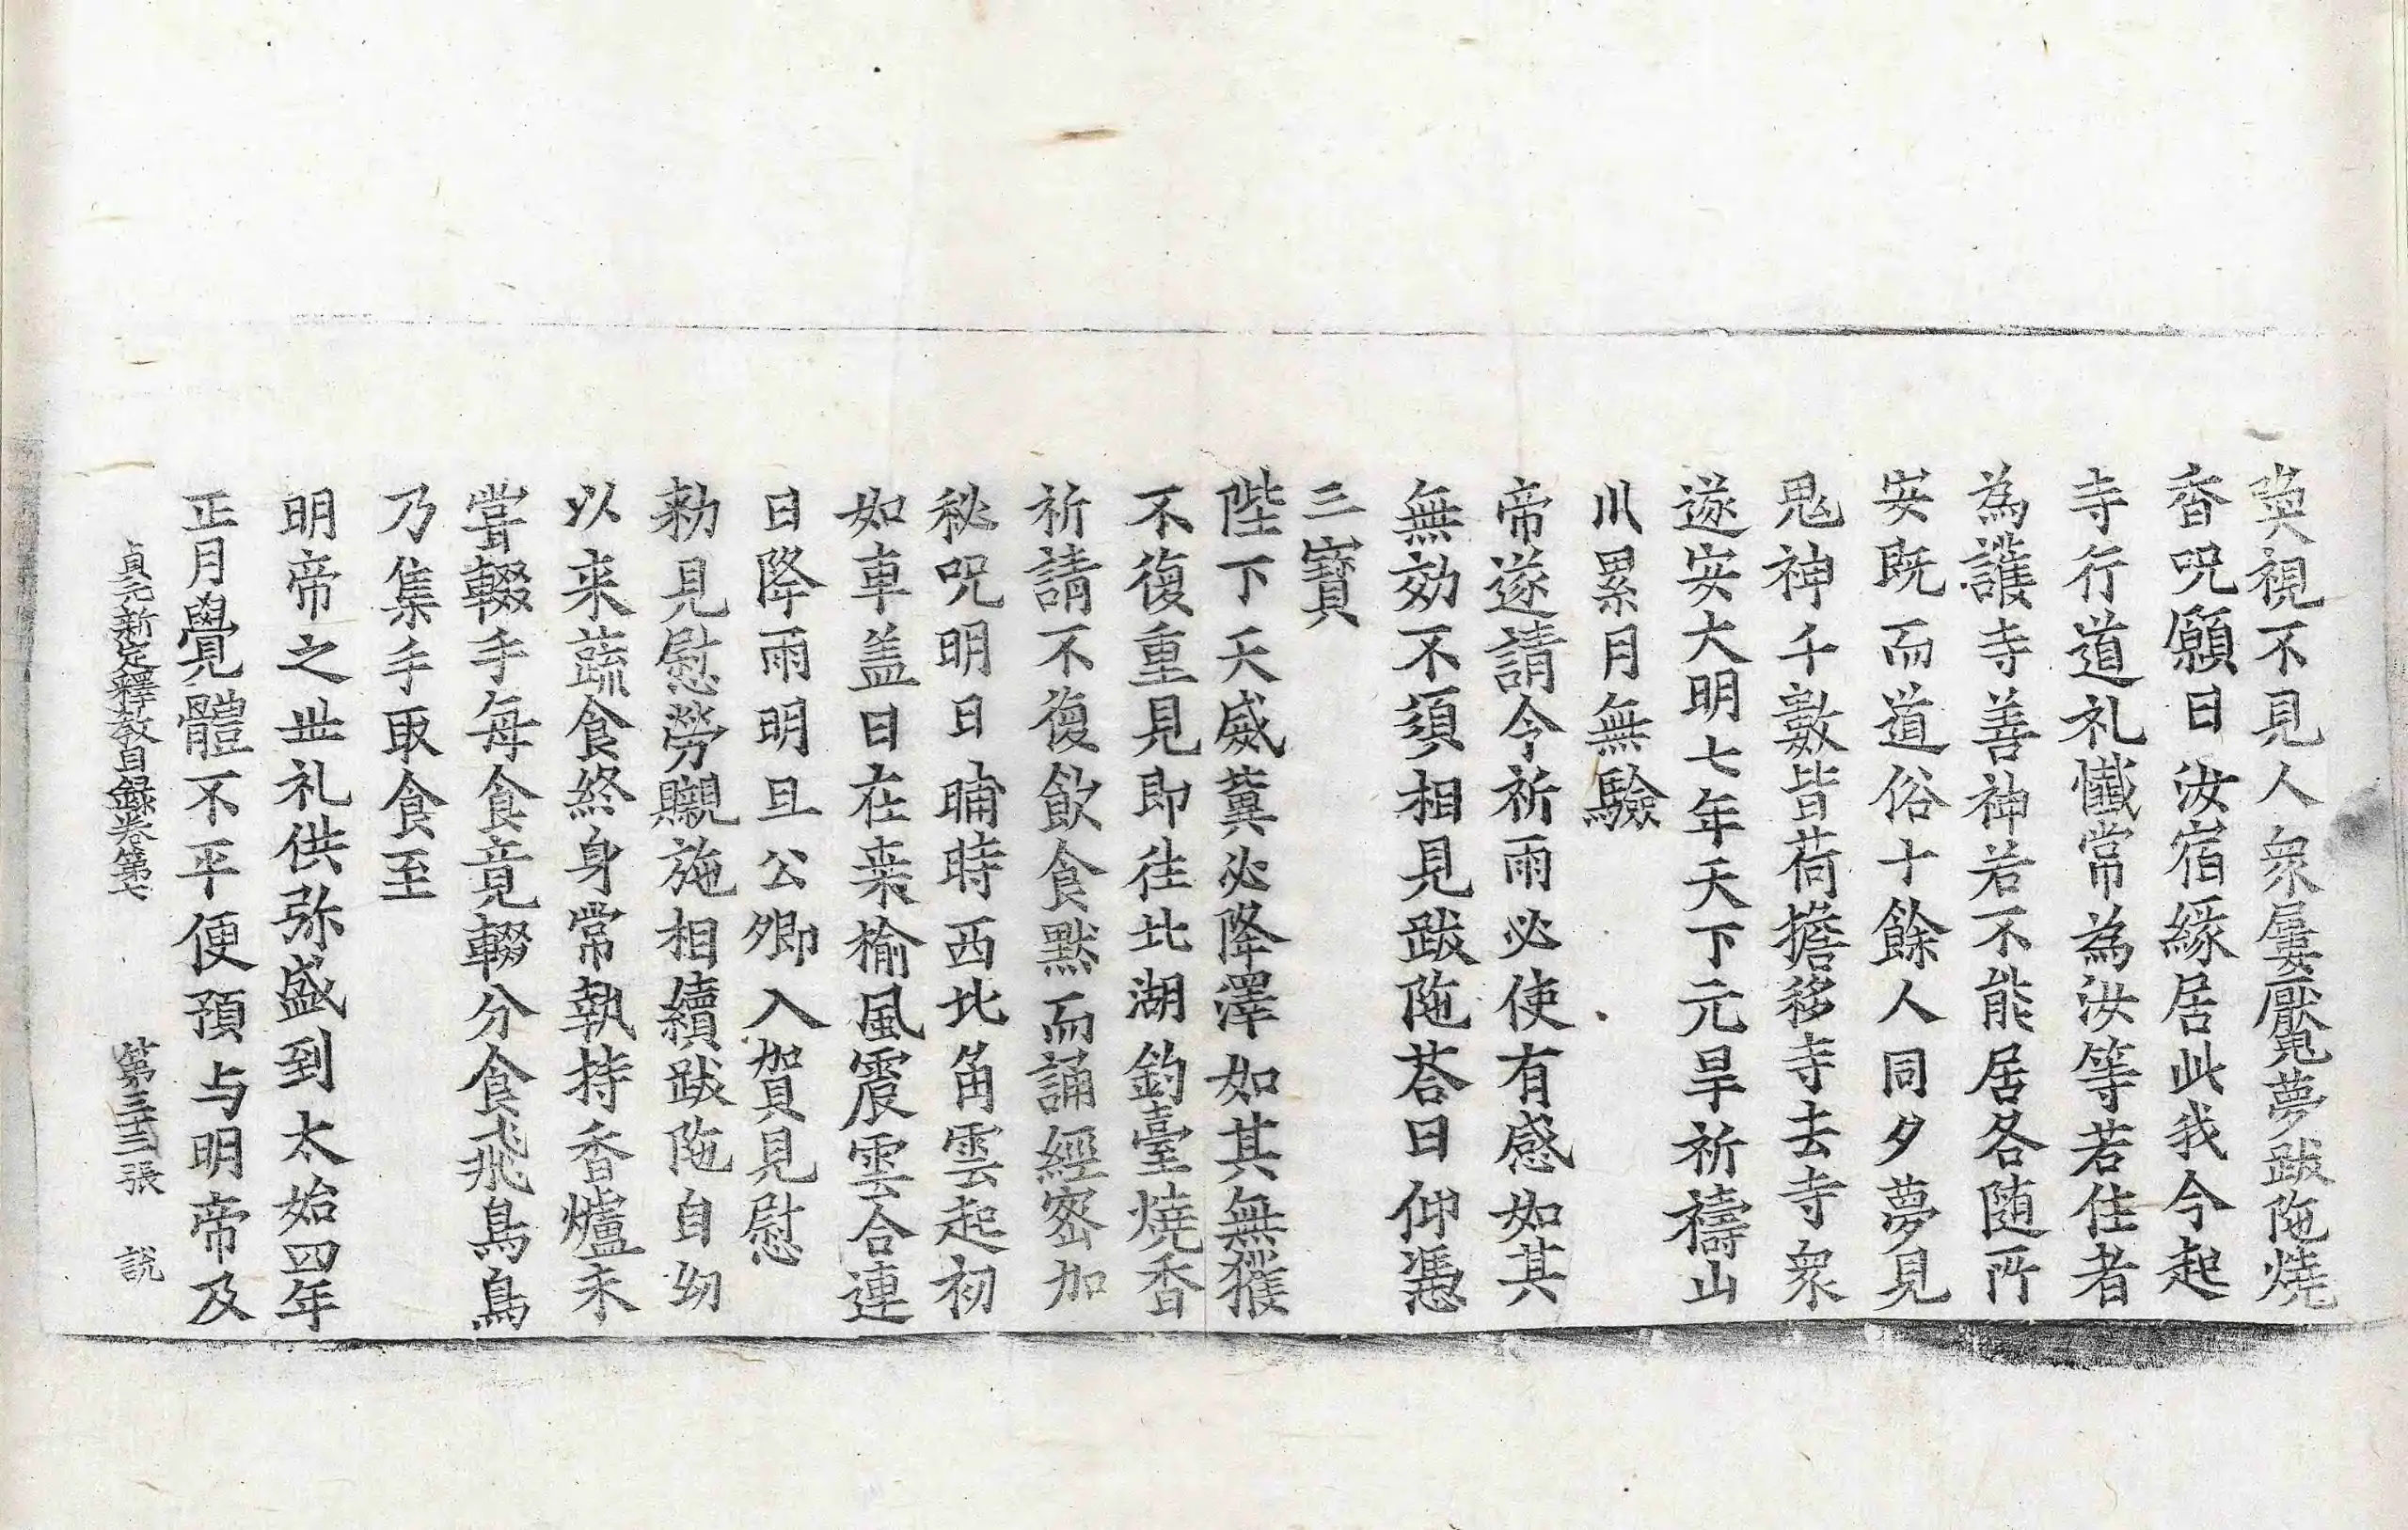 莫視不見人衆屢魘夢跋陁燒
香呪願曰汝宿緣居此我今起
寺行道礼懺常為汝等若住者
為護寺善神若不能居各随所
安既而道俗十餘人同夕夢見
鬼神千數皆荷擔移寺去寺衆
遂安大明七年天下亢旱祈禱山
川累月無驗
帝遂請令祈雨必使有感如其
無効不須相見跋陁荅曰仰憑
三寶
陛下天威冀必降澤如其無獲
不復重見即往北湖釣臺燒香
祈請不復飲食默而誦經密加
秘呪明日晡時西北角雲起初
如車盖日在桒榆風震雲合連
日降雨明旦公卿入賀見慰
勑見慰勞嚫施相續跋陁自幼
以来蔬食終身常執持香爐未
甞輟手每食竟輟分食飛鳥鳥
乃集手取食至
明帝之世礼供弥盛到太始四年
正月覺體不平便預与明帝及
貞元新定釋教目錄卷第七 第三十三張 説